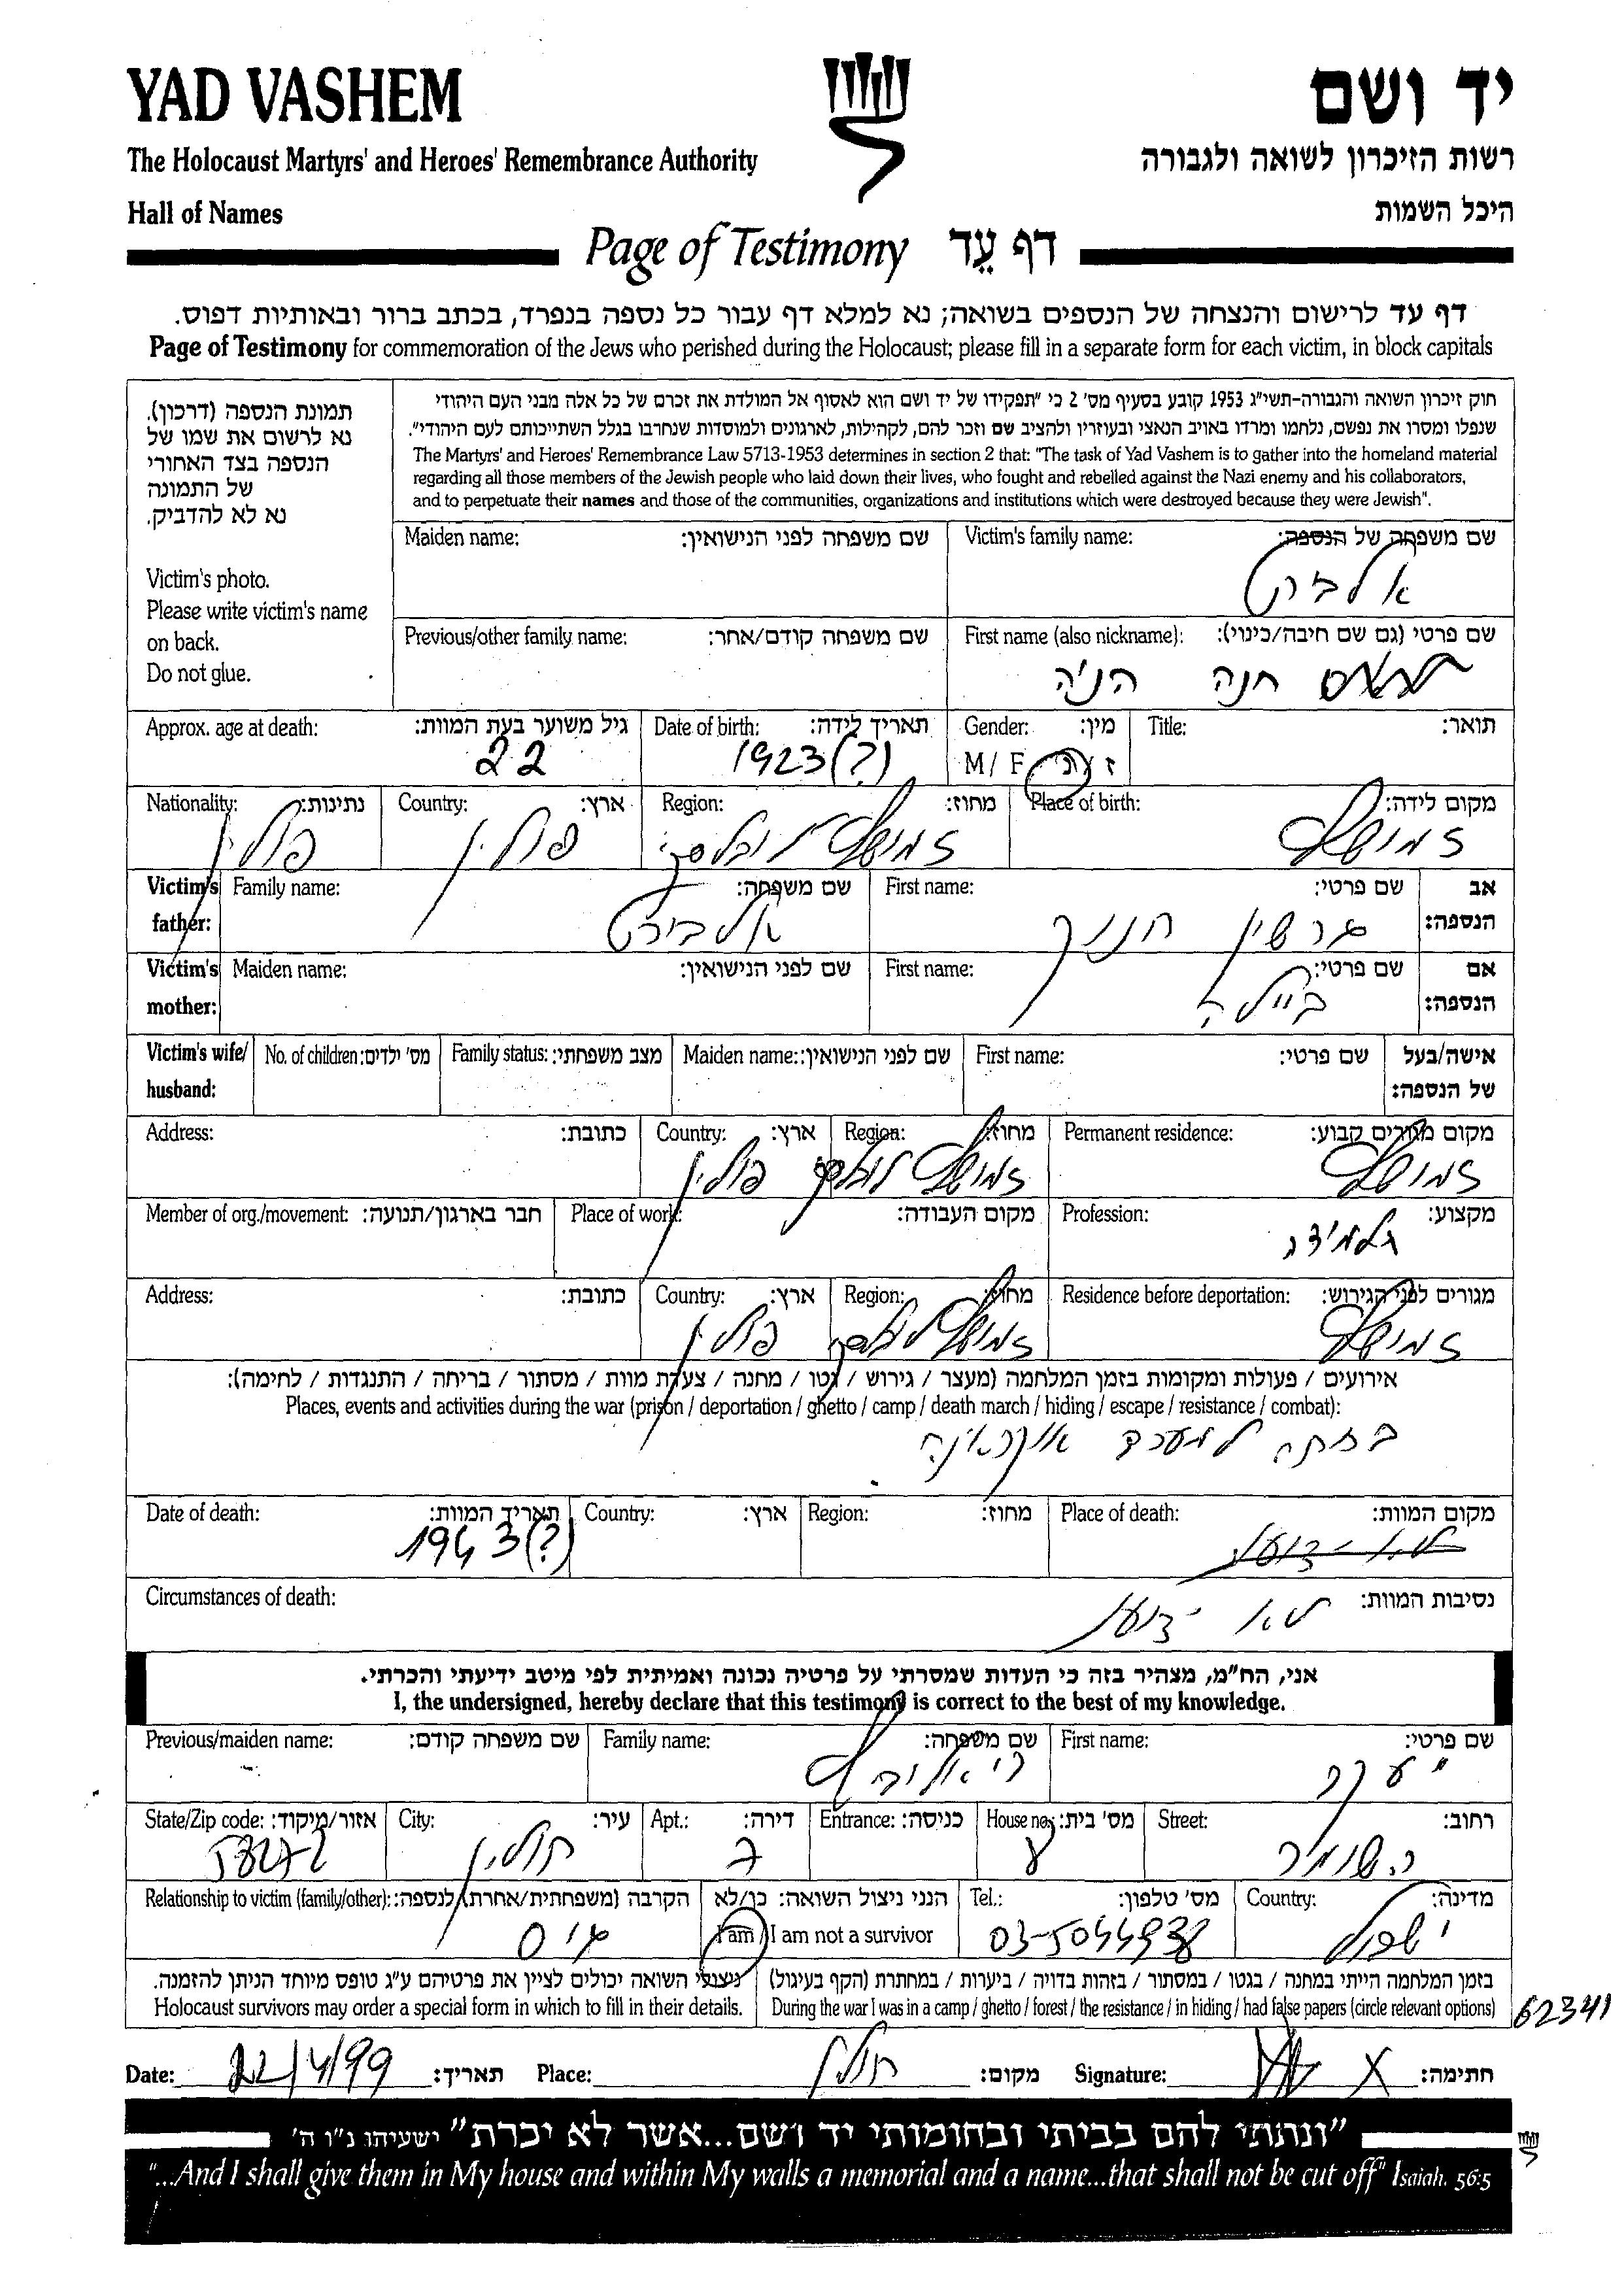 YAD VASHEM
יד ושם
The Holocaust Martyrs' and Heroes' Remembrance Authority
רשות הזיכרון לשואה ולגבורה
Hall of Names
היכל השמות
Page of Testimony דף עֵד
דף עד לרישום והנצחה של הנספים בשואה; נא למלא דף עבור כל נספה בנפרד, בכתב ברור ובאותיות דפוס.
Page of Testimony for commemoration of the Jews who perished during the Holocaust; please fill in a separate form for each victim, in block capitals
תמונת הנספה (דרכון).
נא לרשום את שמו של
הנספה בצד האחורי
של התמונה
נא לא להדביק.
Victim's photo.
Please write victim's name
on back.
Do not glue.
חוק זיכרון השואה והגבורה-תשי"ג 1953 קובע בסעיף מס' 2 כי "תפקידו של יד ושם הוא לאסוף אל המולדת את זכרם של כל אלה מבני העם היהודי
שנפלו ומסרו את נפשם, נלחמו ומרדו באויב הנאצי ובעוזריו ולהציב שם וזכר להם, לקהילות, לארגונים ולמוסדות שנחרבו בגלל השתייכותם לעם היהודי".
The Martyrs' and Heroes' Remembrance Law 5713-1953 determines in section 2 that: "The task of Yad Vashem is to gather into the homeland material
regarding all those members of the Jewish people who laid down their lives, who fought and rebelled against the Nazi enemy and his collaborators,
and to perpetuate their names and those of the communities, organizations and institutions which were destroyed because they were Jewish".
Maiden name: שם משפחה לפני הנישואין: Victim's family name: שם משפחה של הנספה:
Previous/other family name: שם משפחה קודם/אחר: First name (also nickname): שם פרטי (גם שם חיבה/כינוי):
חנה הניה
Approx. age at death: גיל משוער בעת המוות: Date of birth: תאריך לידה: Gender: מין: Title: תואר:
22 1923(?) M/ F ז / נ
Nationality: נתינות: Country: ארץ: Region: מחוז: Place of birth: מקום לידה:
פולין פולין
Victim's father: Family name: שם משפחה: First name: שם פרטי: אב הנספה:
גרשון חנוך
Victim's mother: Maiden name: שם לפני הנישואין: First name: שם פרטי: אם הנספה:
ביילה
Victim's wife/ husband: No. of children: מס' ילדים: Family status: מצב משפחתי: Maiden name: שם לפני הנישואין: First name: שם פרטי: אישה/בעל של הנספה:
Address: כתובת: Country: ארץ: Region: מחוז: Permanent residence: מקום מגורים קבוע:
פולין
Member of org./movement: חבר בארגון/תנועה: Place of work: מקום העבודה: Profession: מקצוע:
תלמידה
Address: כתובת: Country: ארץ: Region: מחוז: Residence before deportation: מגורים לפני הגירוש:
פולין
אירועים / פעולות ומקומות בזמן המלחמה (מעצר / גירוש / גטו / מחנה / צעדת מוות / מסתור / בריחה / התנגדות / לחימה):
Places, events and activities during the war (prison / deportation / ghetto / camp / death march / hiding / escape / resistance / combat):
ברחה למערב אוקראינה
Date of death: תאריך המוות: Country: ארץ: Region: מחוז: Place of death: מקום המוות:
1943(?) לא ידוע
Circumstances of death: נסיבות המוות:
לא ידוע
אני, הח"מ, מצהיר בזה כי העדות שמסרתי על פרטיה נכונה ואמיתית לפי מיטב ידיעתי והכרתי.
I, the undersigned, hereby declare that this testimony is correct to the best of my knowledge.
Previous/maiden name: שם משפחה קודם: Family name: שם משפחה: First name: שם פרטי:
יעקב
State/Zip code: אזור/מיקוד: City: עיר: Apt.: דירה: Entrance: כניסה: House no.: מס' בית: Street: רחוב:
חולון 7 השומר
Relationship to victim (family/other): הקרבה (משפחתית/אחרת) לנספה: הנני ניצול השואה: כן/לא Tel.: מס' טלפון: Country: מדינה:
גיס I am / I am not a survivor ישראל
ניצולי השואה יכולים לציין את פרטיהם ע"ג טופס מיוחד הניתן להזמנה. בזמן המלחמה הייתי במחנה / בגטו / במסתור / בזהות בדויה / ביערות / במחתרת (הקף בעיגול)
Holocaust survivors may order a special form in which to fill in their details. During the war I was in a camp / ghetto / forest / the resistance / in hiding / had false papers (circle relevant options)
62341
Date: 22/4/99 תאריך: Place: חולון מקום: Signature: X חתימה:
"ונתתי להם בביתי ובחומותי יד ושם...אשר לא יכרת" ישעיהו נ"ו ה'
"...And I shall give them in My house and within My walls a memorial and a name...that shall not be cut off" Isaiah. 56:5